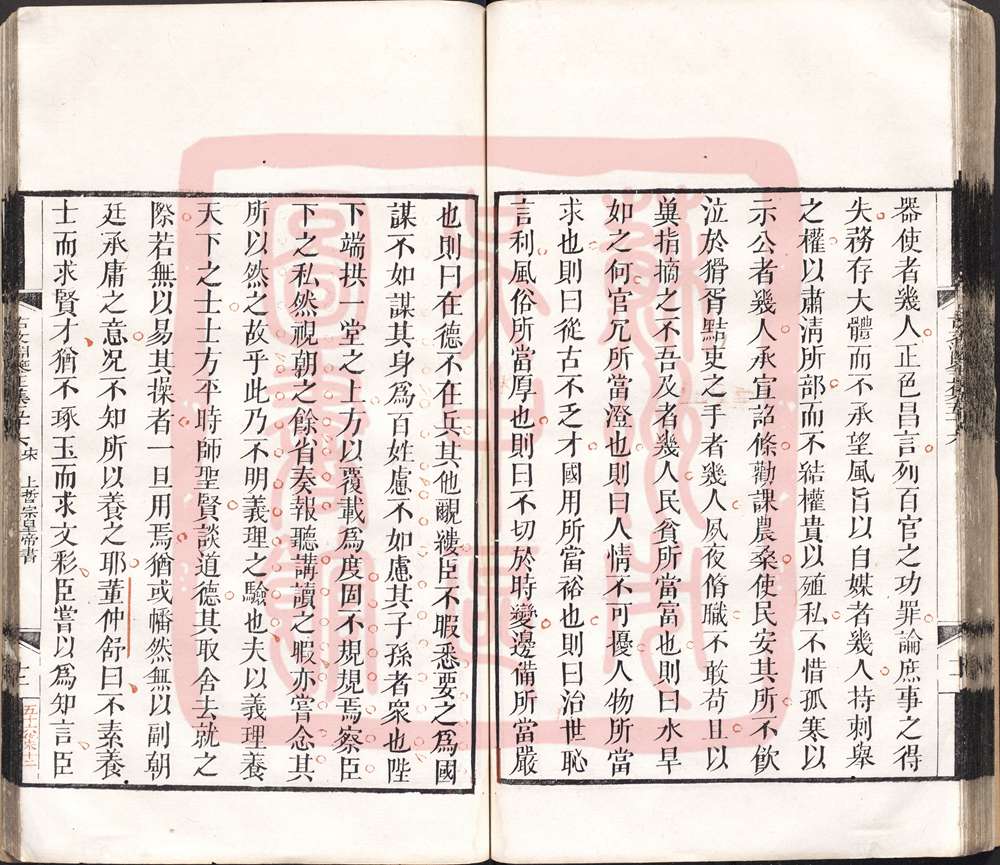 器使者幾人正色昌言列百官之功罪論庶事之得
失務存大體而不承望風旨以自媒者幾人持刺舉
之權以肅清所部而不結權貴以殖私不惜孤寒以
示公者幾人承宣詔條勸課農桑使民安其所不飲
泣於猾胥黠吏之手者幾人夙夜脩職不敢苟且以
冀指摘之不吾及者幾人民貧所當富也則曰水旱
如之何官冗所當澄也則曰人情不可擾人物所當
求也則曰從古不乏才國用所當裕也則曰治世恥
言利風俗所當厚也則曰不切於時變邊備所當嚴
也則曰在德不在兵其他覼縷臣不暇悉要之為國
謀不如謀其身為百姓慮不如慮其子孫者衆也陛
下端拱一堂之上方以覆載為度固不規規焉察臣
下之私然視朝之餘省奏報聽講讀之暇亦嘗念其
所以然之故乎此乃不明義理之驗也夫以義理養
天下之士士方平時師聖賢談道德其取舍去就之
際若無以易其操者一旦用焉猶或幡然無以副朝
廷承庸之意况不知所以養之耶董仲舒曰不素養
士而求賢才猶不琢玉而求文彩臣嘗以為知言臣
上哲宗皇帝書